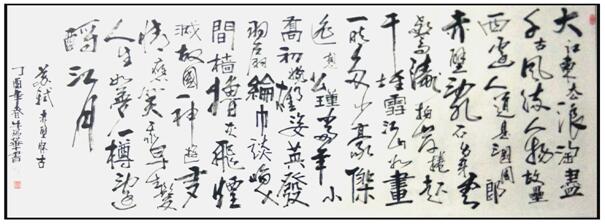 大江東去浪淘盡
千古風流人物故壘
西邊人道是三國周郎
赤壁亂石崩雲
驚濤拍岸捲起
千堆雪江山如畫
一時多少豪傑
遙想公瑾當年小
喬初嫁了雄姿英發
羽扇綸巾談笑
間檣櫓灰飛煙
滅故國神遊多
情應笑我早生華髮
人生如夢一樽還
酹江月
蘇軾赤壁懷古
丁酉年春 華書